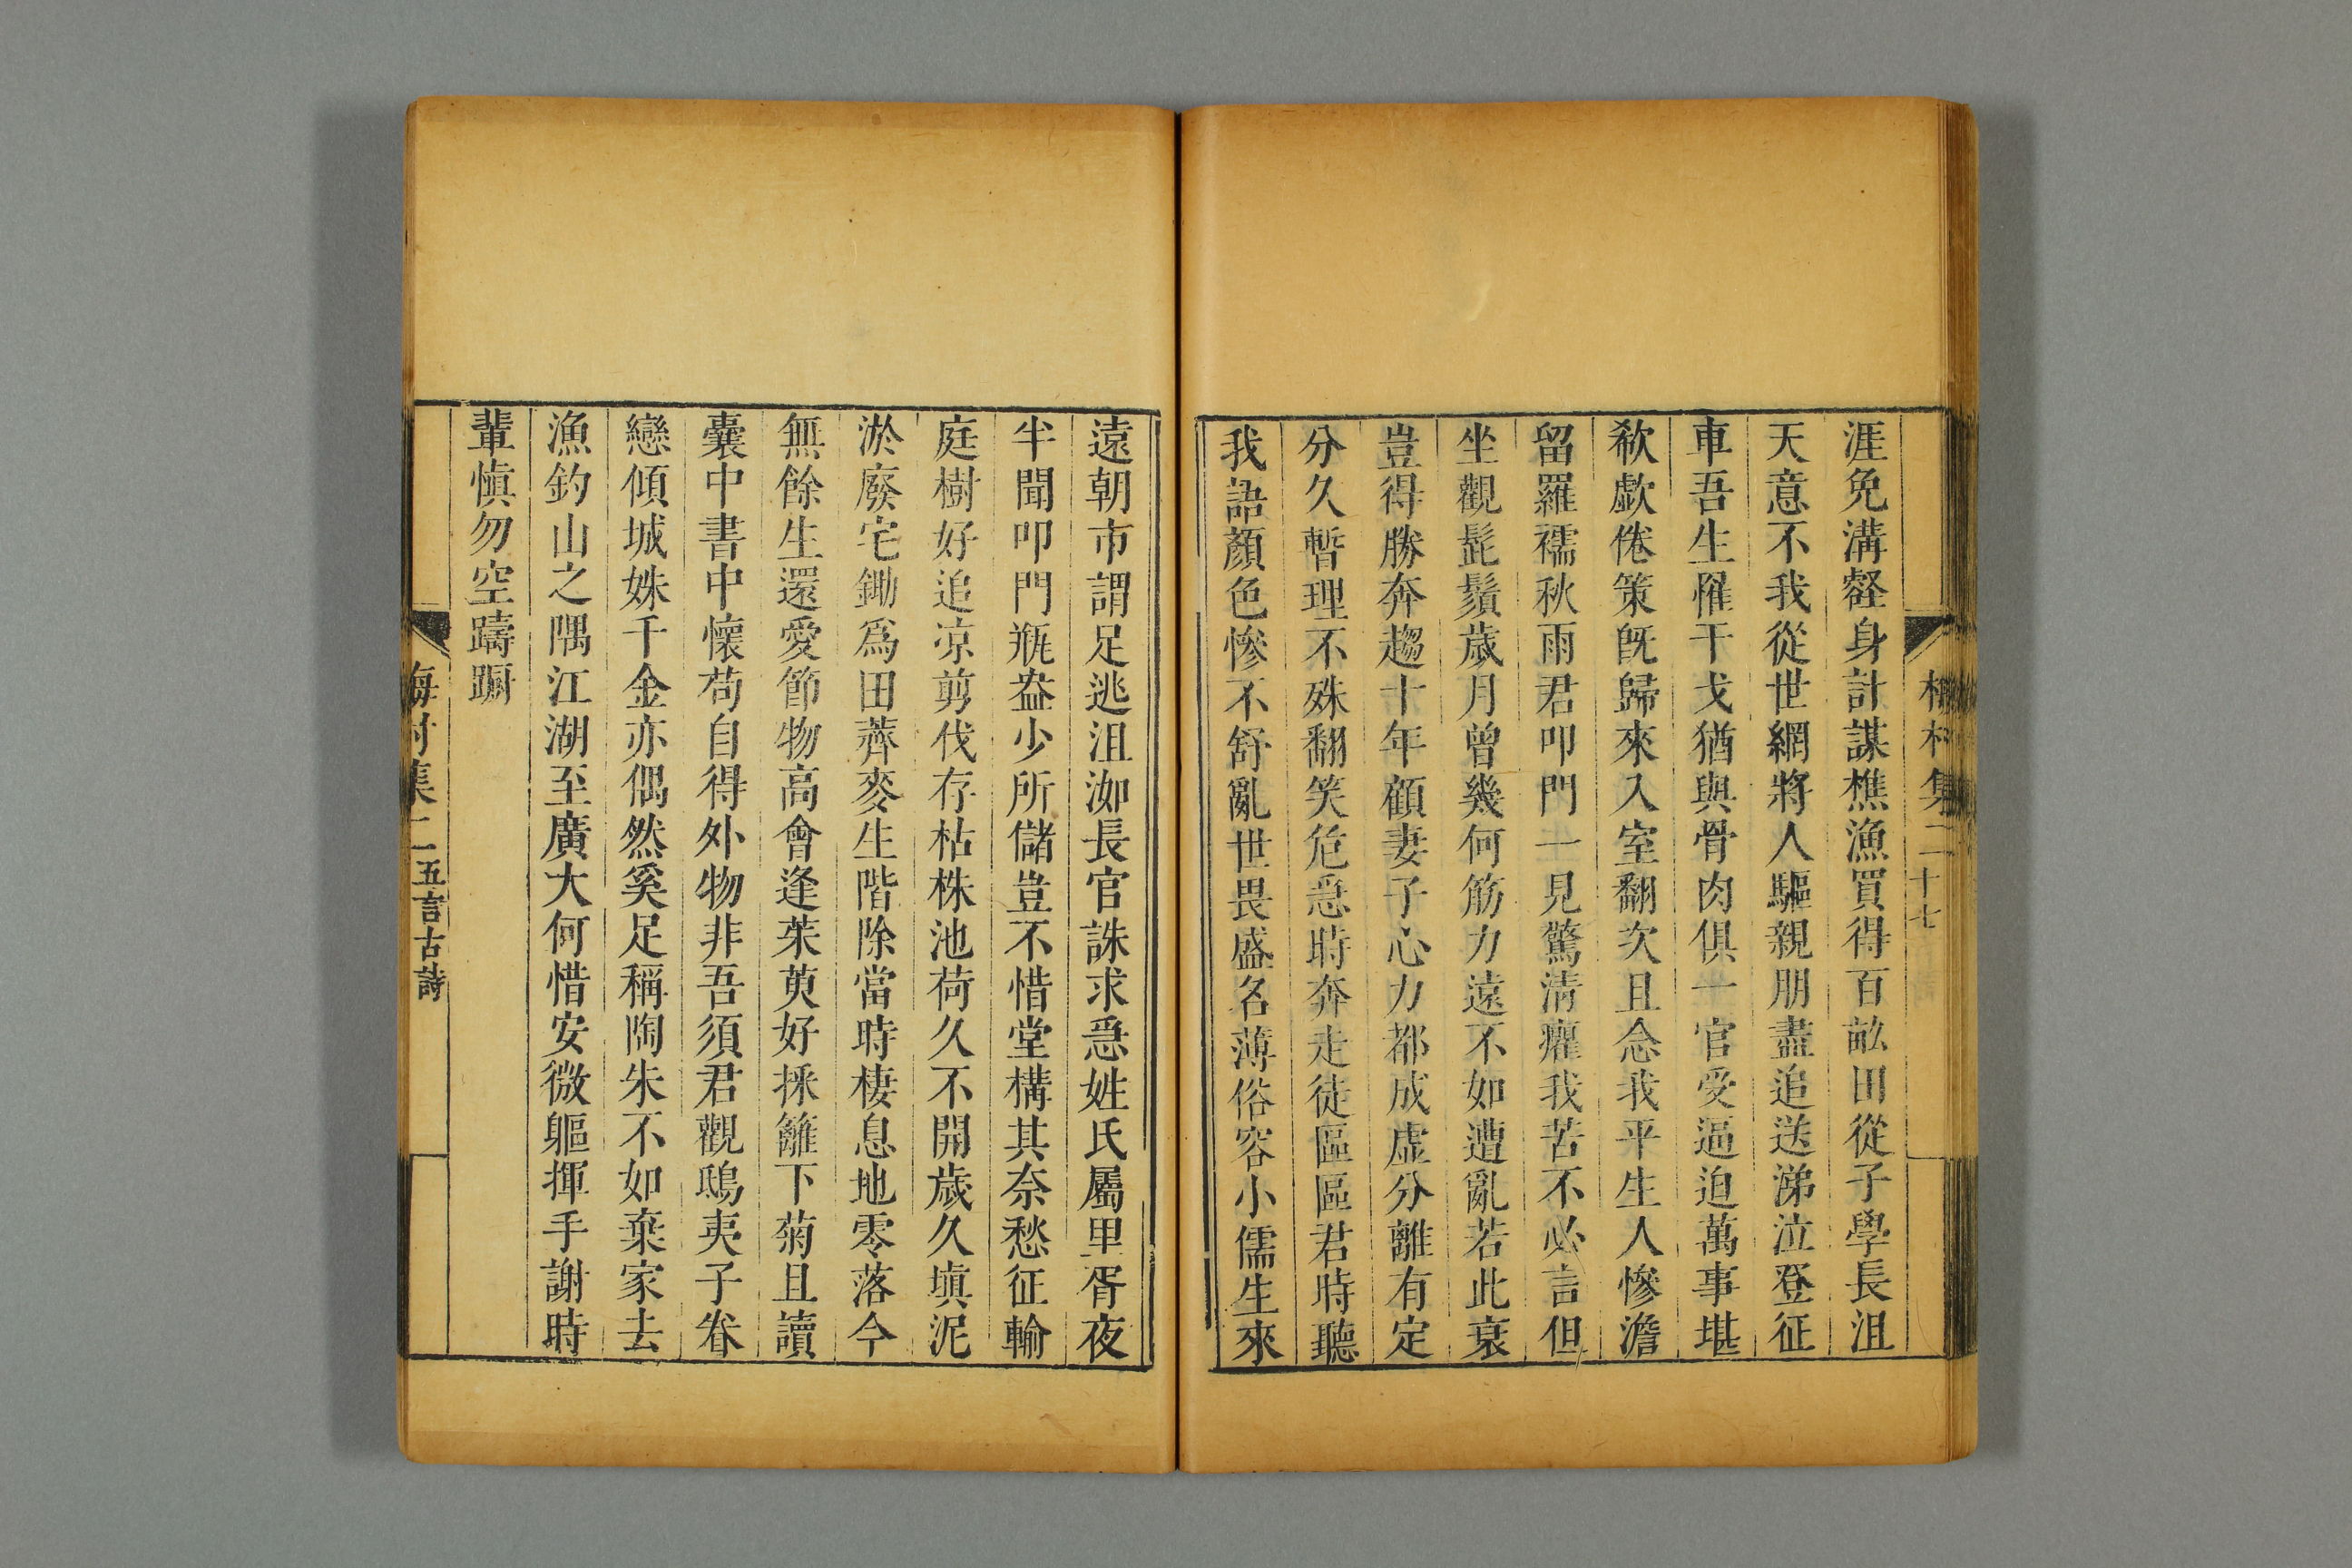 梅村集二 十七
涯免溝壑身計謀樵漁買得百畝田從子學長沮
天意不我從世網將人驅親朋盡追送涕泣登征
車吾生罹干戈猶與骨肉俱一官受逼迫萬事堪
欷歔倦策旣歸來入室翻次且念我平生人慘澹
留羅襦秋雨君叩門一見驚淸癯我苦不必言但
坐觀髭鬚歲月曾幾何筋力遠不如遭亂若此衰
豈得勝奔趨十年顧妻子心力都成虛分離有定
分久暫理不殊翻笑危急時奔走徒區區君時聽
我語顏色慘不舒亂世畏盛名薄俗容小儒生來
遠朝市謂足逃沮洳長官誅求急姓氏屬里胥夜
半聞叩門瓶盎少所儲豈不惜堂構其奈愁征輸
庭樹好追凉剪伐存枯株池荷久不開歲久塡泥
淤廢宅鋤爲田薺麥生階除當時棲息地零落今
無餘生還愛節物高會逢茱萸好採籬下菊且讀
囊中書中懷苟自得外物非吾須君觀鴟夷子眷
戀傾城姝千金亦偶然奚足稱陶朱不如棄家去
漁釣山之隅江湖至廣大何惜安微軀揮手謝時
輩愼勿空躊躕
梅村集二 五言古詩